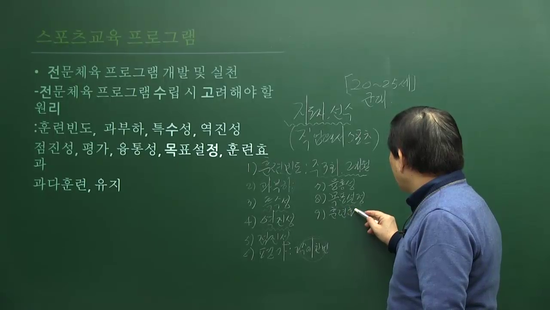 스포츠교육 프로그램
• 전문체육 프로그램 개발 및 실천
-전문체육 프로그램 수립 시 고려해야 할
원리
:훈련빈도, 과부하, 특수성, 역진성
점진성, 평가, 융통성, 목표설정, 훈련효
과
과다훈련, 유지
[20~25세]
군대
지도자 선수
1) 훈련빈도: 주3회
2) 과부하 7) 융통성
3) 특수성 8) 목표설정
4) 역진성 9) 훈련
5) 점진성
6) 평가: